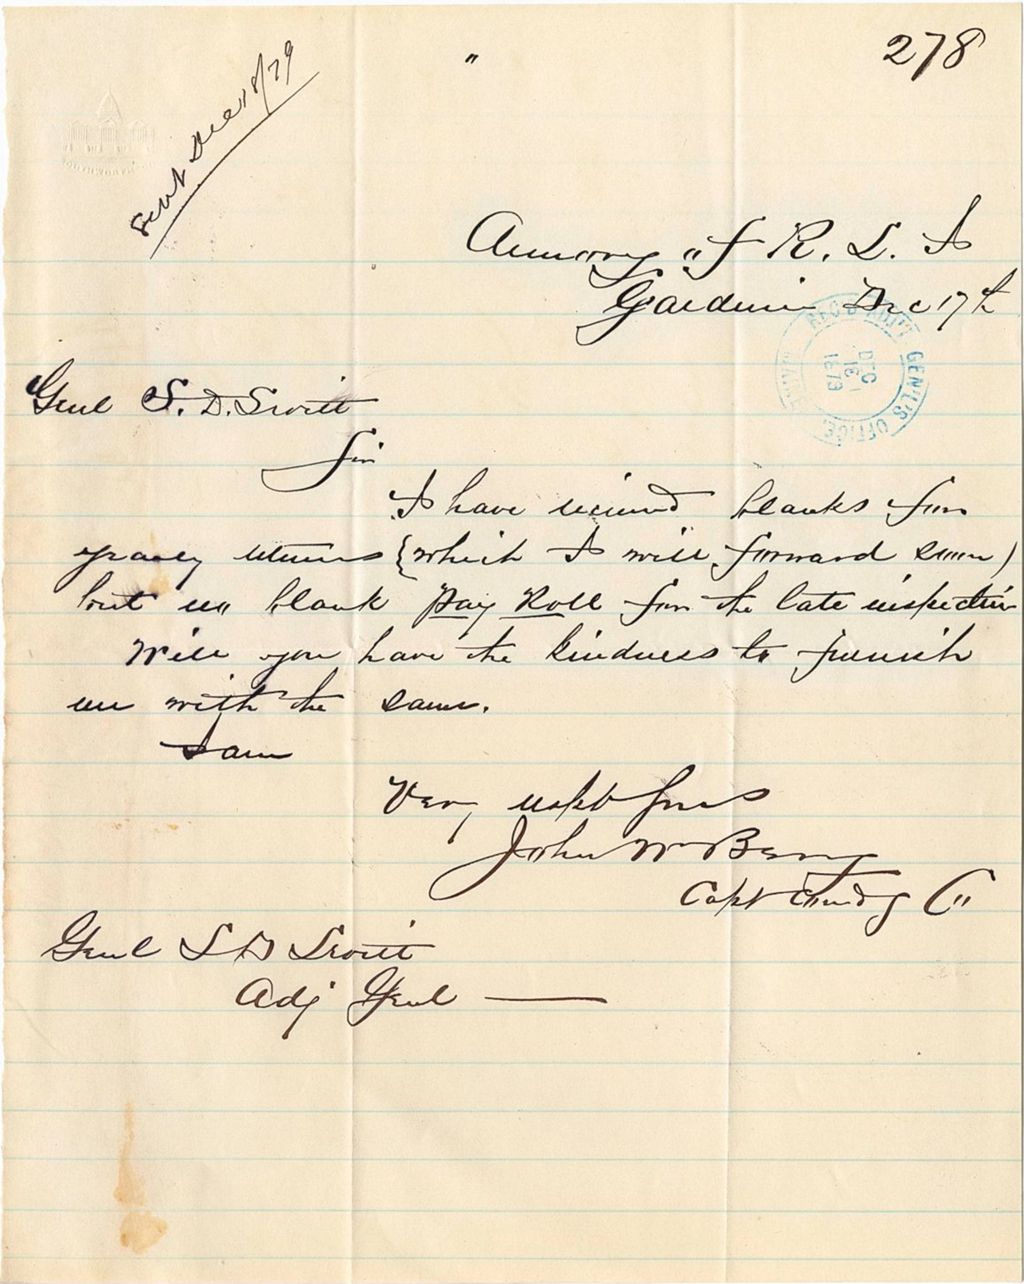 278
Sent Dec 18/79
Armory of R. L. I
Gardiner Dec 17th
REC'D ADJ'T GEN'L'S OFFICE, MAINE
DEC
18
1879
Genl S. D. Leavitt
Sir
I have received blanks for
yearly returns (which I will forward soon)
but no blank Pay Roll for the late inspection
Will you have the kindness to furnish
me with the same.
I am
Very respt yours
John W Berry
Capt Comdg Co
Genl S D Leavitt
Adj Genl